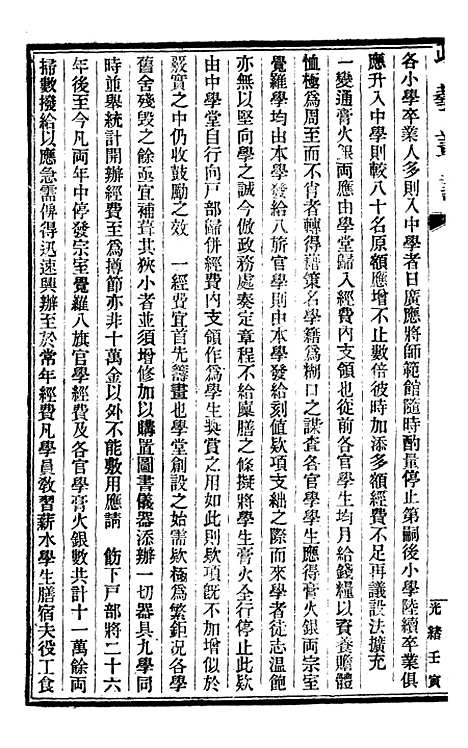 各小學卒業人多則入中學者日廣應將師範館隨時酌量停止第嗣後小學陸續卒業俱
應升入中學則較八十名原額應增不止數倍彼時加添多額經費不足再議設法擴充
一變通膏火銀兩應由學堂歸入經費內支領也從前各官學生均月給錢糧以資養贍體
恤極爲周至而不肖者轉得藉策名學籍爲糊口之謀査各官學學生應得膏火銀兩宗室
覺羅學均由本學發給八旂官學則由本學發給刻値欵項支絀之際而來學者徒志溫飽
亦無以堅向學之誠今倣政務處奏定章程不給廩膳之條擬將學生膏火全行停止此欵
由中學堂自行向戸部歸併經費內支領作爲學生奬賞之用如此則欵項旣不加增似於
覈實之中仍收鼓勵之效　一經費宜首先籌畫也學堂創設之始需欵極爲繁鉅況各學
舊舍殘毀之餘亟宜補葺其狹小者並須增修加以購置圖書儀器添辦一切器具九學同
時並舉統計開辦經費至爲撙節亦非十萬金以外不能敷用應請　飭下戸部將二十六
年後至今凡兩年中停發宗室覺羅八旗官學經費及各官學膏火銀數共計十一萬餘兩
掃數撥給以應急需俾得迅速興辦至於常年經費凡學員敎習薪水學生膳宿夫役工食
光緖壬寅